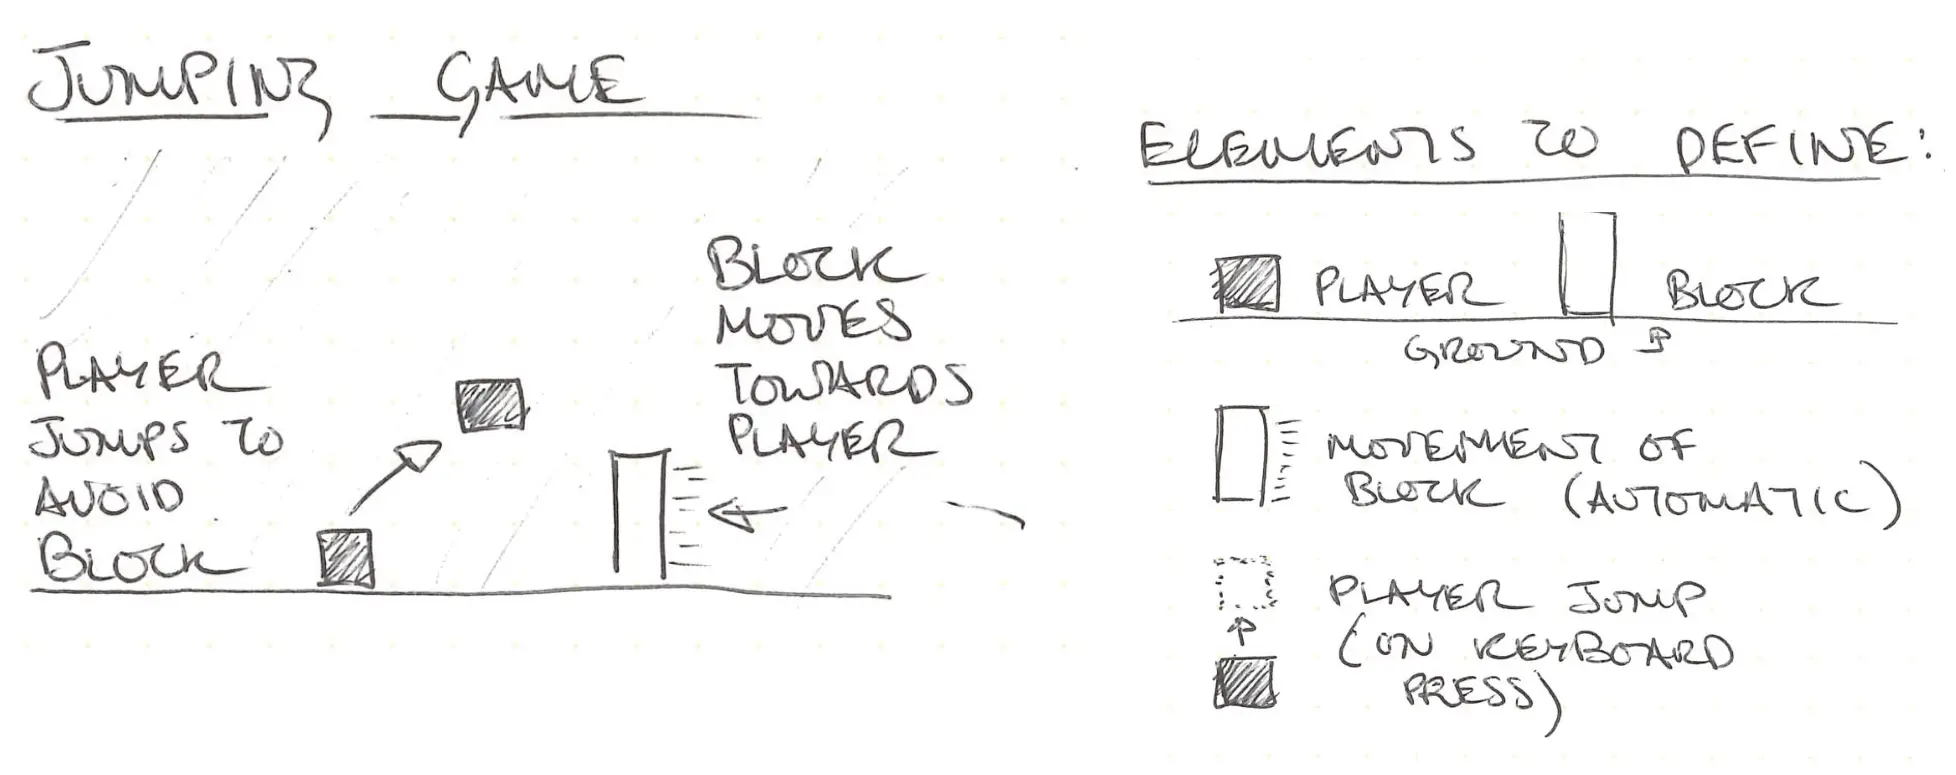 JUMPING GAME
PLAYER
JUMPS TO
AVOID
BLOCK
BLOCK
MOVES
TOWARDS
PLAYER
ELEMENTS TO DEFINE:
PLAYER
BLOCK
GROUND
MOVEMENT OF
BLOCK (AUTOMATIC)
PLAYER JUMP
(ON KEYBOARD
PRESS)